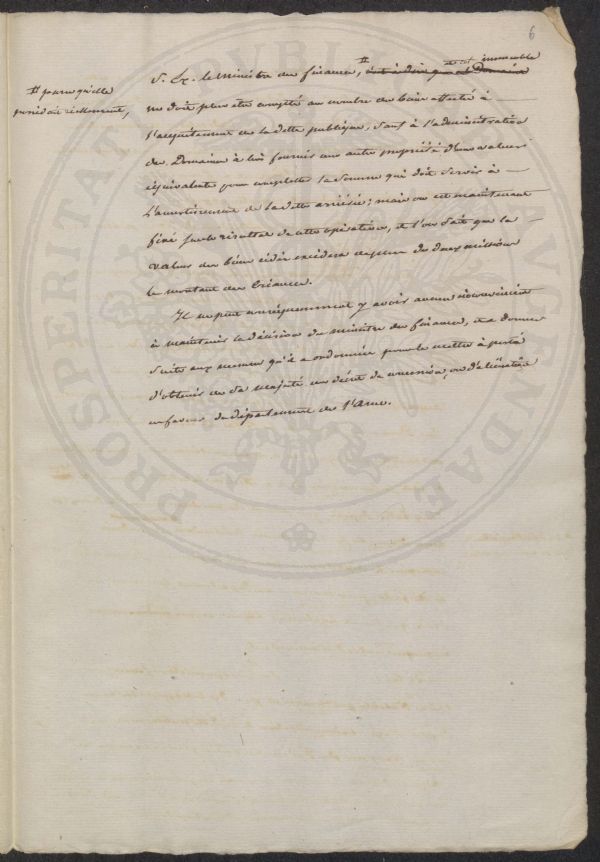 6
# pourvu qu'elle
periodait réellement,
S. Ex. le Ministre des finances, # c'est à dire que ce Domaine
cet immeuble
ne doit plus être compté au nombre des biens affectés à
l'acquittement de la dette publique, sauf à l'administration
des Domaines à lui fournir une autre propriété d'une valeur
équivalente pour completter la somme qui doit servir à
l'amortissement de la dette arriérée; mais on est maintenant
fixé sur le résultat de cette opération, et l'on sait que la
valeur des biens cédés excédera de deux millions
le montant des créances.
Il ne peut conséquemment y avoir aucun inconvénient
à maintenir la décision du ministre des finances, et à donner
suite aux mesures qu'il a ordonnées pour le mettre à portée
d'obtenir de Sa Majesté un décret de concession, ou d'aliénation
en faveur du département de l'Arno.
PROSPERITATI PUBLICAE AUGENDAE